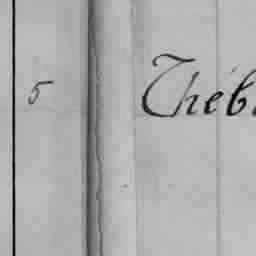 5 Théb